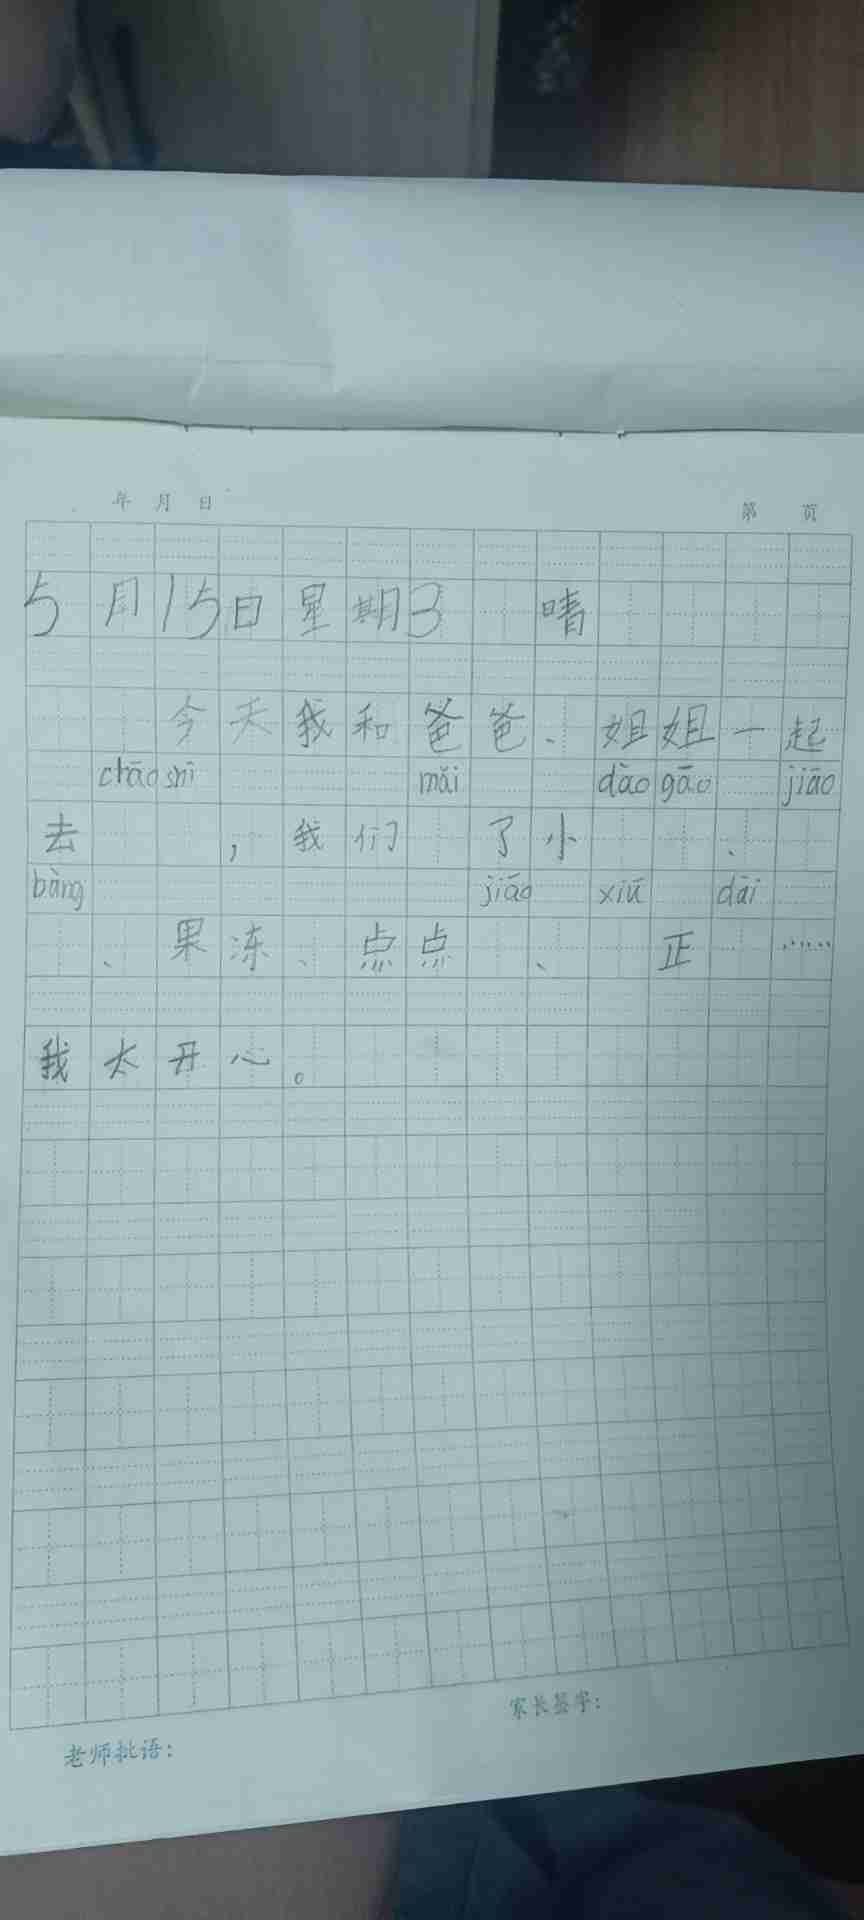 年 月 日 第 页
5月15日星期3 晴
今天我和爸爸、姐姐一起
chāo shì mǎi dào gāo jiāo
去 ，我们 了小 、
bàng jiāo xiū dāi
、果冻、点点 、 正 ……
我太开心。
家长签字：
老师批语：